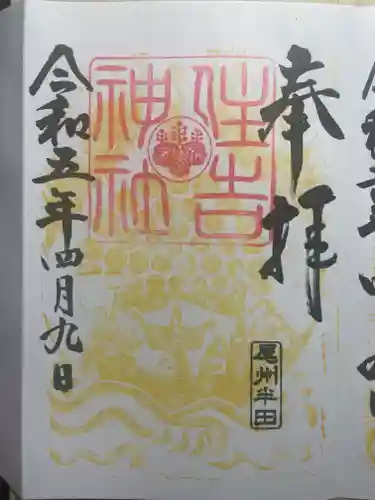 奉拝
住吉神社
尾州半田
令和五年四月九日